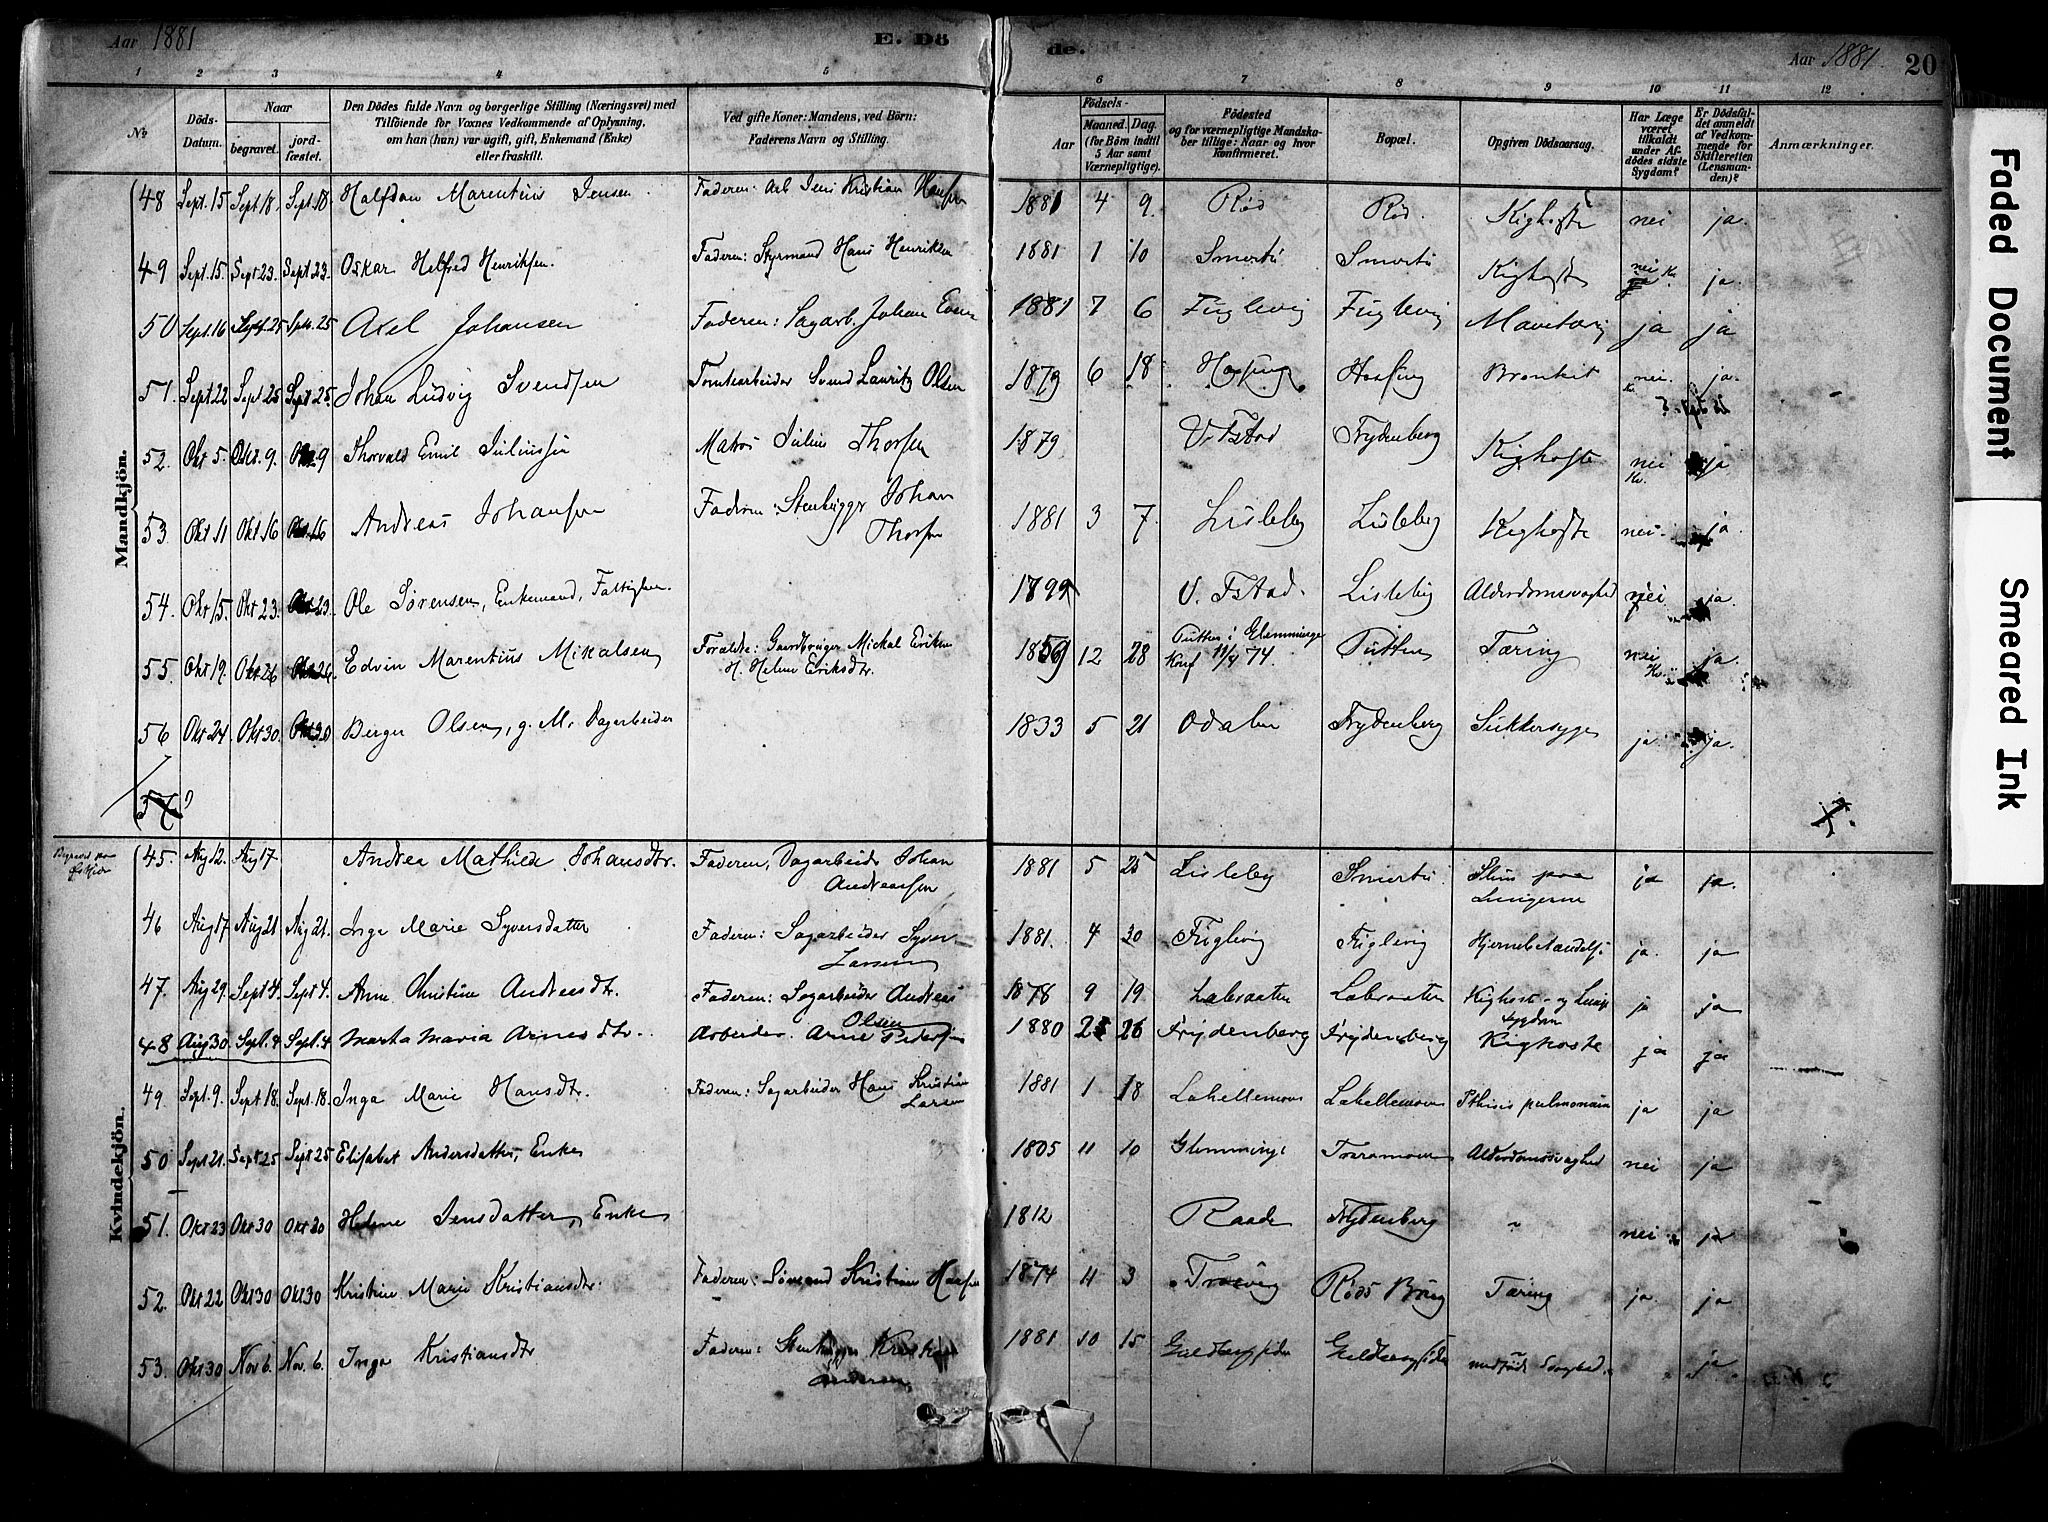 Aar 1881 E. Dö
de. Aar 1881. 20
1 2 3 4 5 6 7 8 9 10 11 12
No
Döds-Datum.
Naar begravet. jordfæstet.
Den Dödes fulde Navn og borgerlige Stilling (Næringsvei) med
Tilföiende for Voxnes Vedkommende af Oplysning,
om han (hun) var ugift, gift, Enkemand (Enke)
eller fraskilt.
Ved gifte Koner: Mandens, ved Börn:
Faderens Navn og Stilling.
Födsels-
Aar Maaned. Dag.
(for Börn indtil
5 Aar samt
Værnepligtige).
Födested
og for værnepligtige Mandska-
ber tillige: Naar og hvor
konfirmeret.
Bopæl.
Opgiven Dödsaarsag.
Har Læge
været
tilkaldt
under Af-
dödes sidste
Sygdom?
Er Dödsfal-
det anmeldt
af Vedkom-
mende for
Skifteretten
(Lensman-
den)?
Anmærkninger.
Mandkjön.
48 Sept. 15 Sept. 18. Sept. 18. Halfdan Marentius Jensen. Faderen: Arb Jens Kristian Hansen 1881 4 9. Rød Rød. Kighoste nei ja.
49 Sept. 15. Sept 23. Sept 23. Oskar Helfred Henriksen. Faderen: Styrmand Hans Henriksen 1881 1 10 Smertu Smertu Kighoste nei ja.
50 Sept. 16 Sept. 25 Sept. 25 Axel Johansen Faderen: Sagarb. Johan Evensen 1881 7 6 Fuglevig Fuglevig ja ja
51. Sept 22 Sept 25 Sept 25. Johan Ludvig Svendsen Tomtearbeider Svend Lauritz Olsen 1879 6 18 Haasing Haasing Bronkit nei. ja.
52. Okt 5. Okt. 9. Okt 9 Thorvald Emil Juliussen Matros Julius Thorsen 1879 V. Fstad Frydenberg Kighoste nei ja
53. Okt 11 Okt 16 Okt 16 Andreas Johansen Faderen: Stenhugger Johan
Thorsen 1881 3 7. Lisleby Lisleby Kighoste nei. ja.
54. Okt 15. Okt 23. Okt 23. Ole Sørensen, Enkemand, Fattiglem. 1799 V. Fstad. Lisleby Alderdomssvaghed nei ja.
55. Okt 19. Okt 26 Okt 26. Edvin Marentius Mikalsen Foraldre: Gaardbruger Mickal Eriksen
H. Helene Eriksdtr. 1859 12 28 Putten i Glemminge
Konf 11/4 74. Putten Tæring nei ja.
56 Okt 24. Okt 30. Okt 30 Berger Olsen, g. M. Dagarbeider 1833 5 21 Odalen Frydenberg Sukkersyge ja. ja.
57?
Kvindekjön.
Begravet paa
45. Aug 12. Aug 17 Andrea Mathilde Johansdtr. Faderen, Dagarbeider Johan
Andreassen 1881 5 25 Lisleby Smertu. Slim paa
Lungerne ja ja.
46 Aug 17 Aug 21 Aug 21. Inga Marie Syversdatter Faderen: Sagarbeider Syver
Larsen 1881. 4 30 Fuglevig Fuglevig ja. ja
47. Aug 29. Sept 4. Sept 4. Anne Christine Andreasdtr. Faderen: Sagarbeider Andreas
Olsen 1878 9 19 Labraaten Labraaten Kighoste og Lunge
sygdom ja ja
48 Aug 30 Sept. 4 Sept. 4 Marta Maria Arnesdtr. Arbeider. Arne Pedersen 1880 2 26 Frydenberg Frydenberg Kighoste ja ja
49. Sept. 9. Sept 18. Sept. 18. Inga Marie Hansdtr. Faderen: Sagarbeider Hans Kristian
Larsen 1881 1 18 Lahellemoen Lahellemoen Pthisis pulmonum ja ja
50 Sept 21. Sept 25 Sept 25 Elisabet Andersdatter, Enke 1805 11 10 Glemminge Alderdomssvaghed nei ja
51. Okt 23 Okt 30 Okt 30 Helene Jensdatter, Enke 1812 Raade Frydenberg " nei. ja
52. Okt 22 Okt 30 Okt 30 Kristine Marie Kristiansdtr. Faderen: Sømand Kristian Hansen 1874 11 3 Røds Brug Tæring ja. ja
53. Okt 30 Nov 6. Nov. 6. Inga Kristiansdtr Faderen: Stenhugger Kristian
Andersen 1881 10 15 Guldbergsiden Guldbergsiden medfødt Svaghed. ja
Faded Document
Smeared Ink